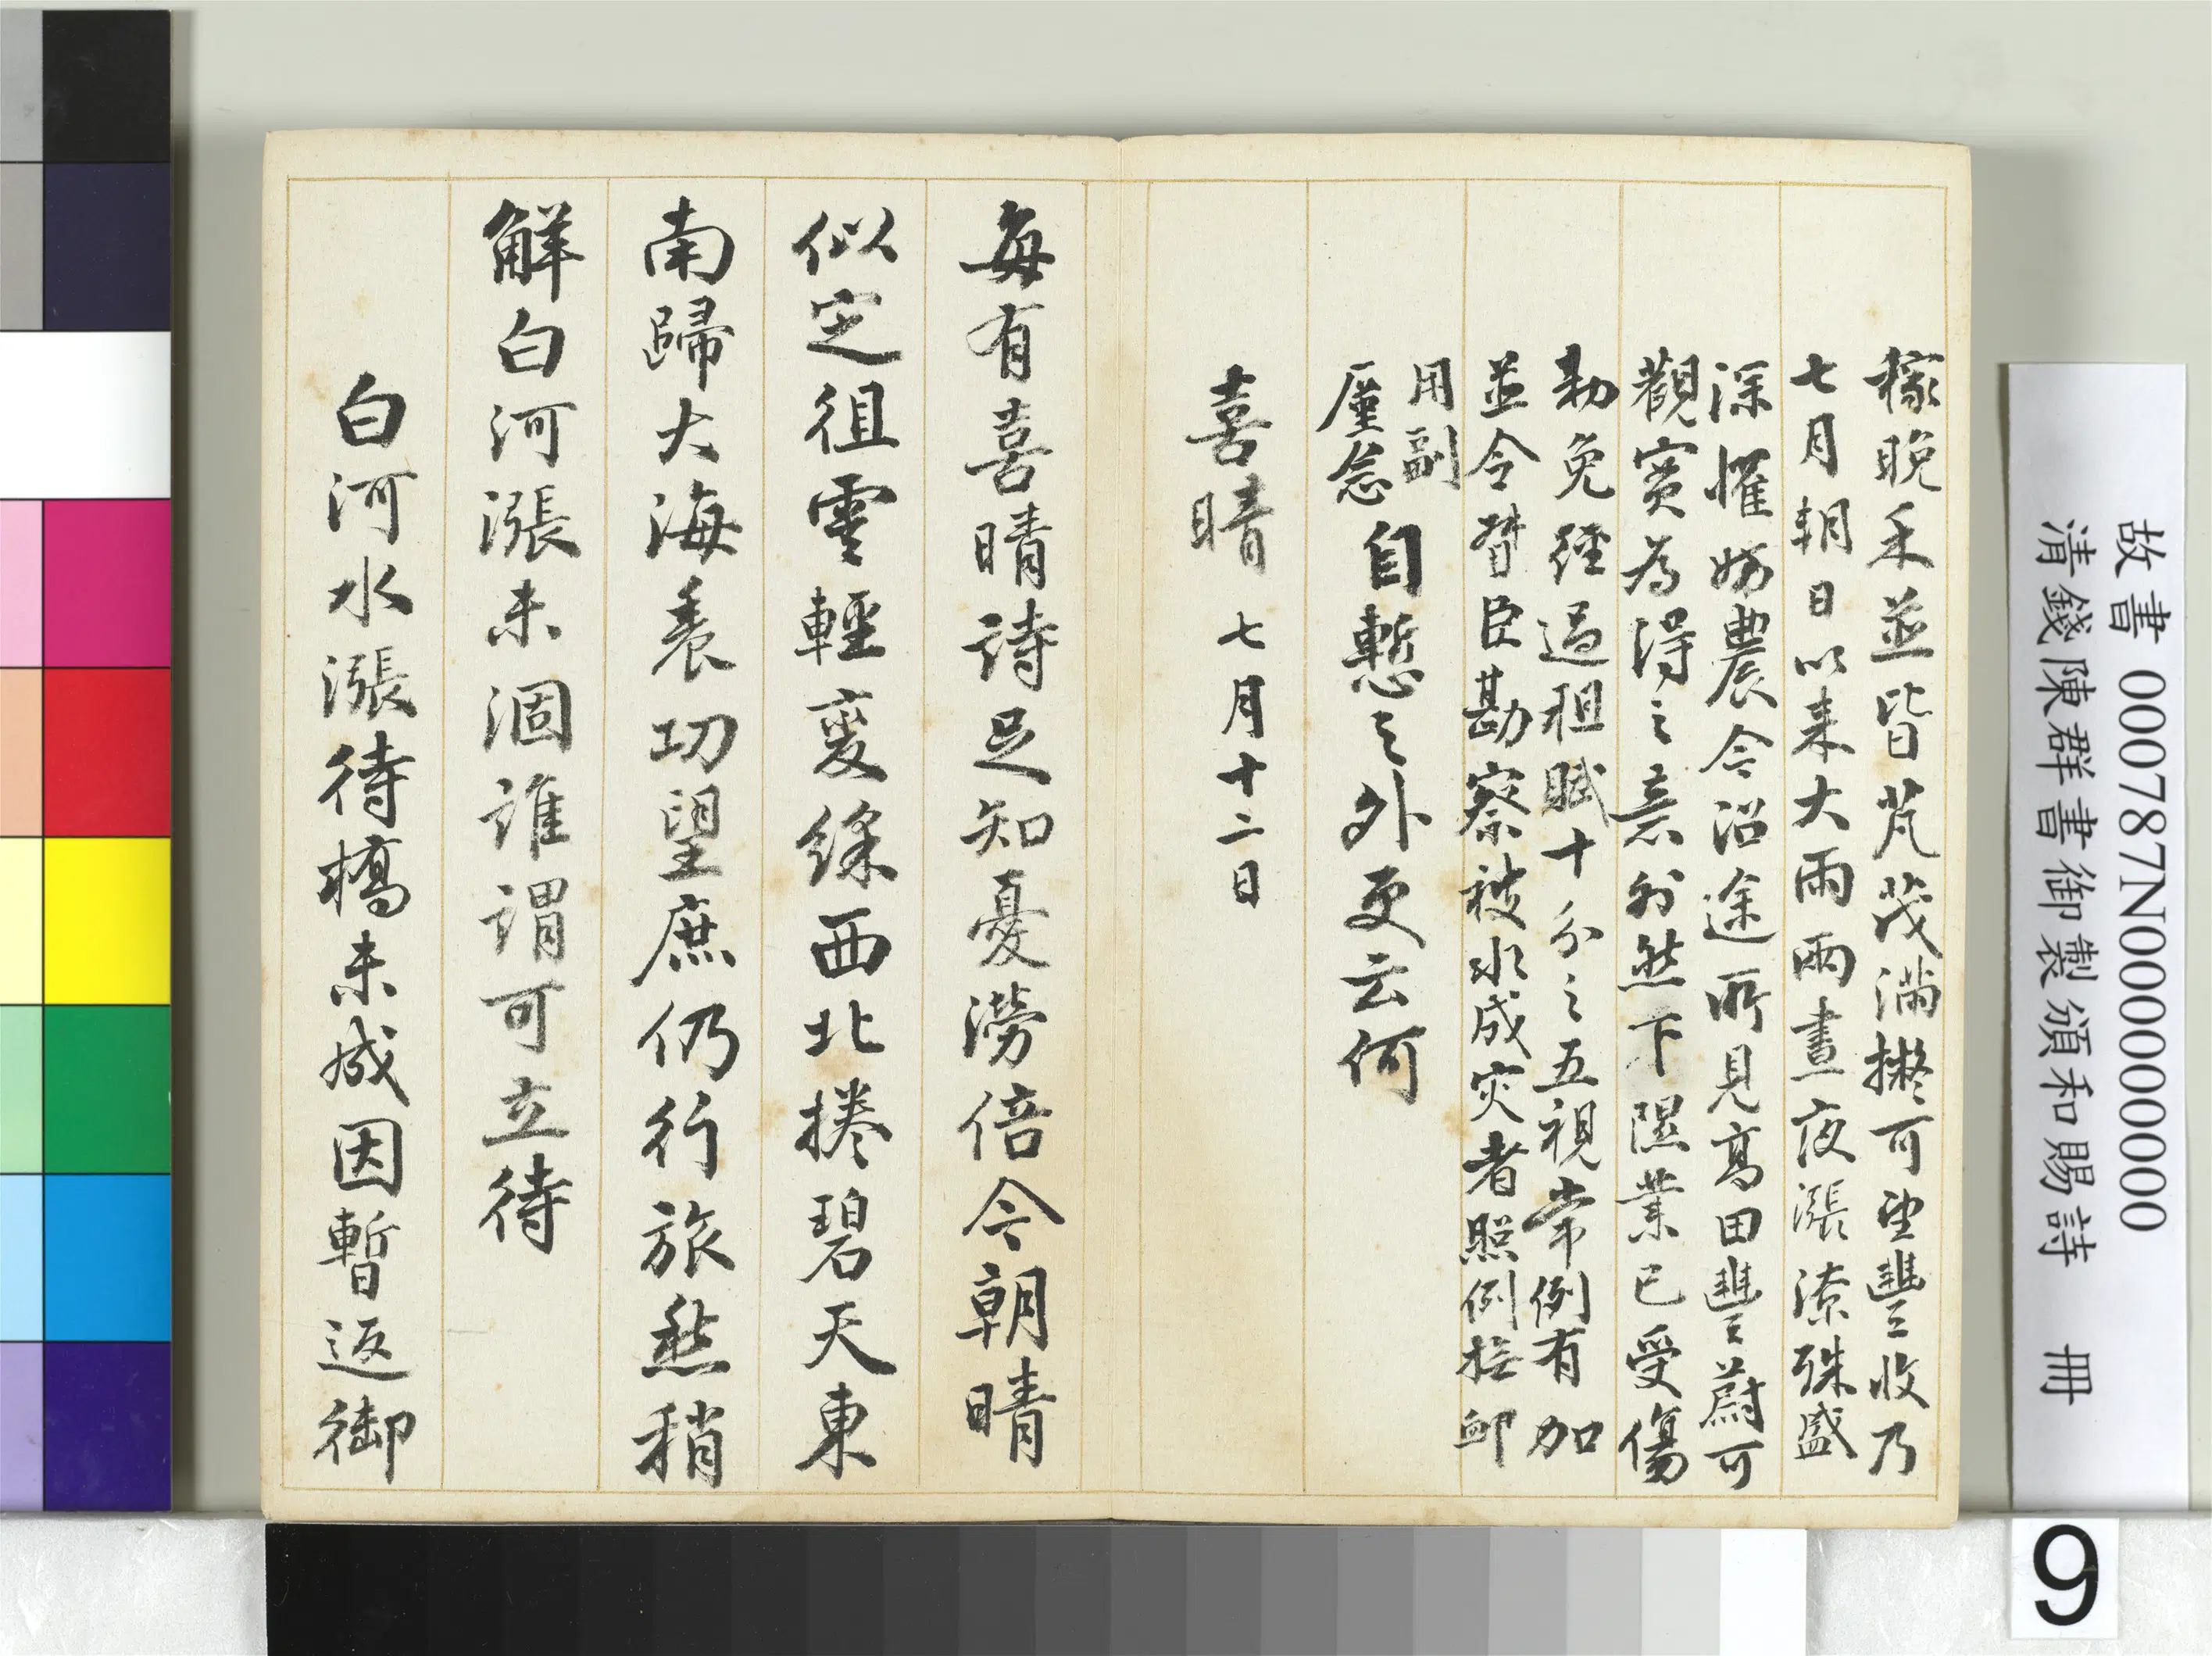 稼晚禾並皆芃茂滿擬可望豐收乃
七月朔日以来大雨兩晝夜漲潦殊盛
深懼妨農今沿途所見高田豐蔚可
觀實為得之意外然下隰業已受傷
勅免經過租賦十分之五視常例有加
並令督臣勘察被水成灾者照例撫卹
用副
廑念
自慙之外更云何
喜晴 七月十二日
每有喜晴詩足知憂澇倍今朝晴
似定徂雲輕裊綠西北捲碧天東
南歸大海養功望庶仍行旅愁稍
解白河漲未涸誰謂可立待
白河水漲待橋未成因暫返御
故書 000787N000000000
清錢陳群書御製頒和賜詩 冊
9